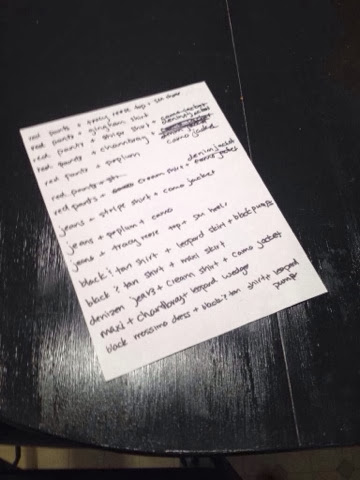 red pants + tracy reese top +
red pants + gingham shirt
red pants + stripe shirt + denim jacket
red pants + chambray + camo jacket
red pants + peplum
red pants +
red pants + cream shirt + denim jacket
jeans + stripe shirt + camo jacket
jeans + peplum + camo
jeans + tracy reese top +
black & tan shirt + leopard skirt + black pumps
black & tan shirt + maxi skirt
denim + cream shirt + camo jacket
maxi + chambray + leopard wedge
black mossimo dress + black & tan shirt + leopard
pump